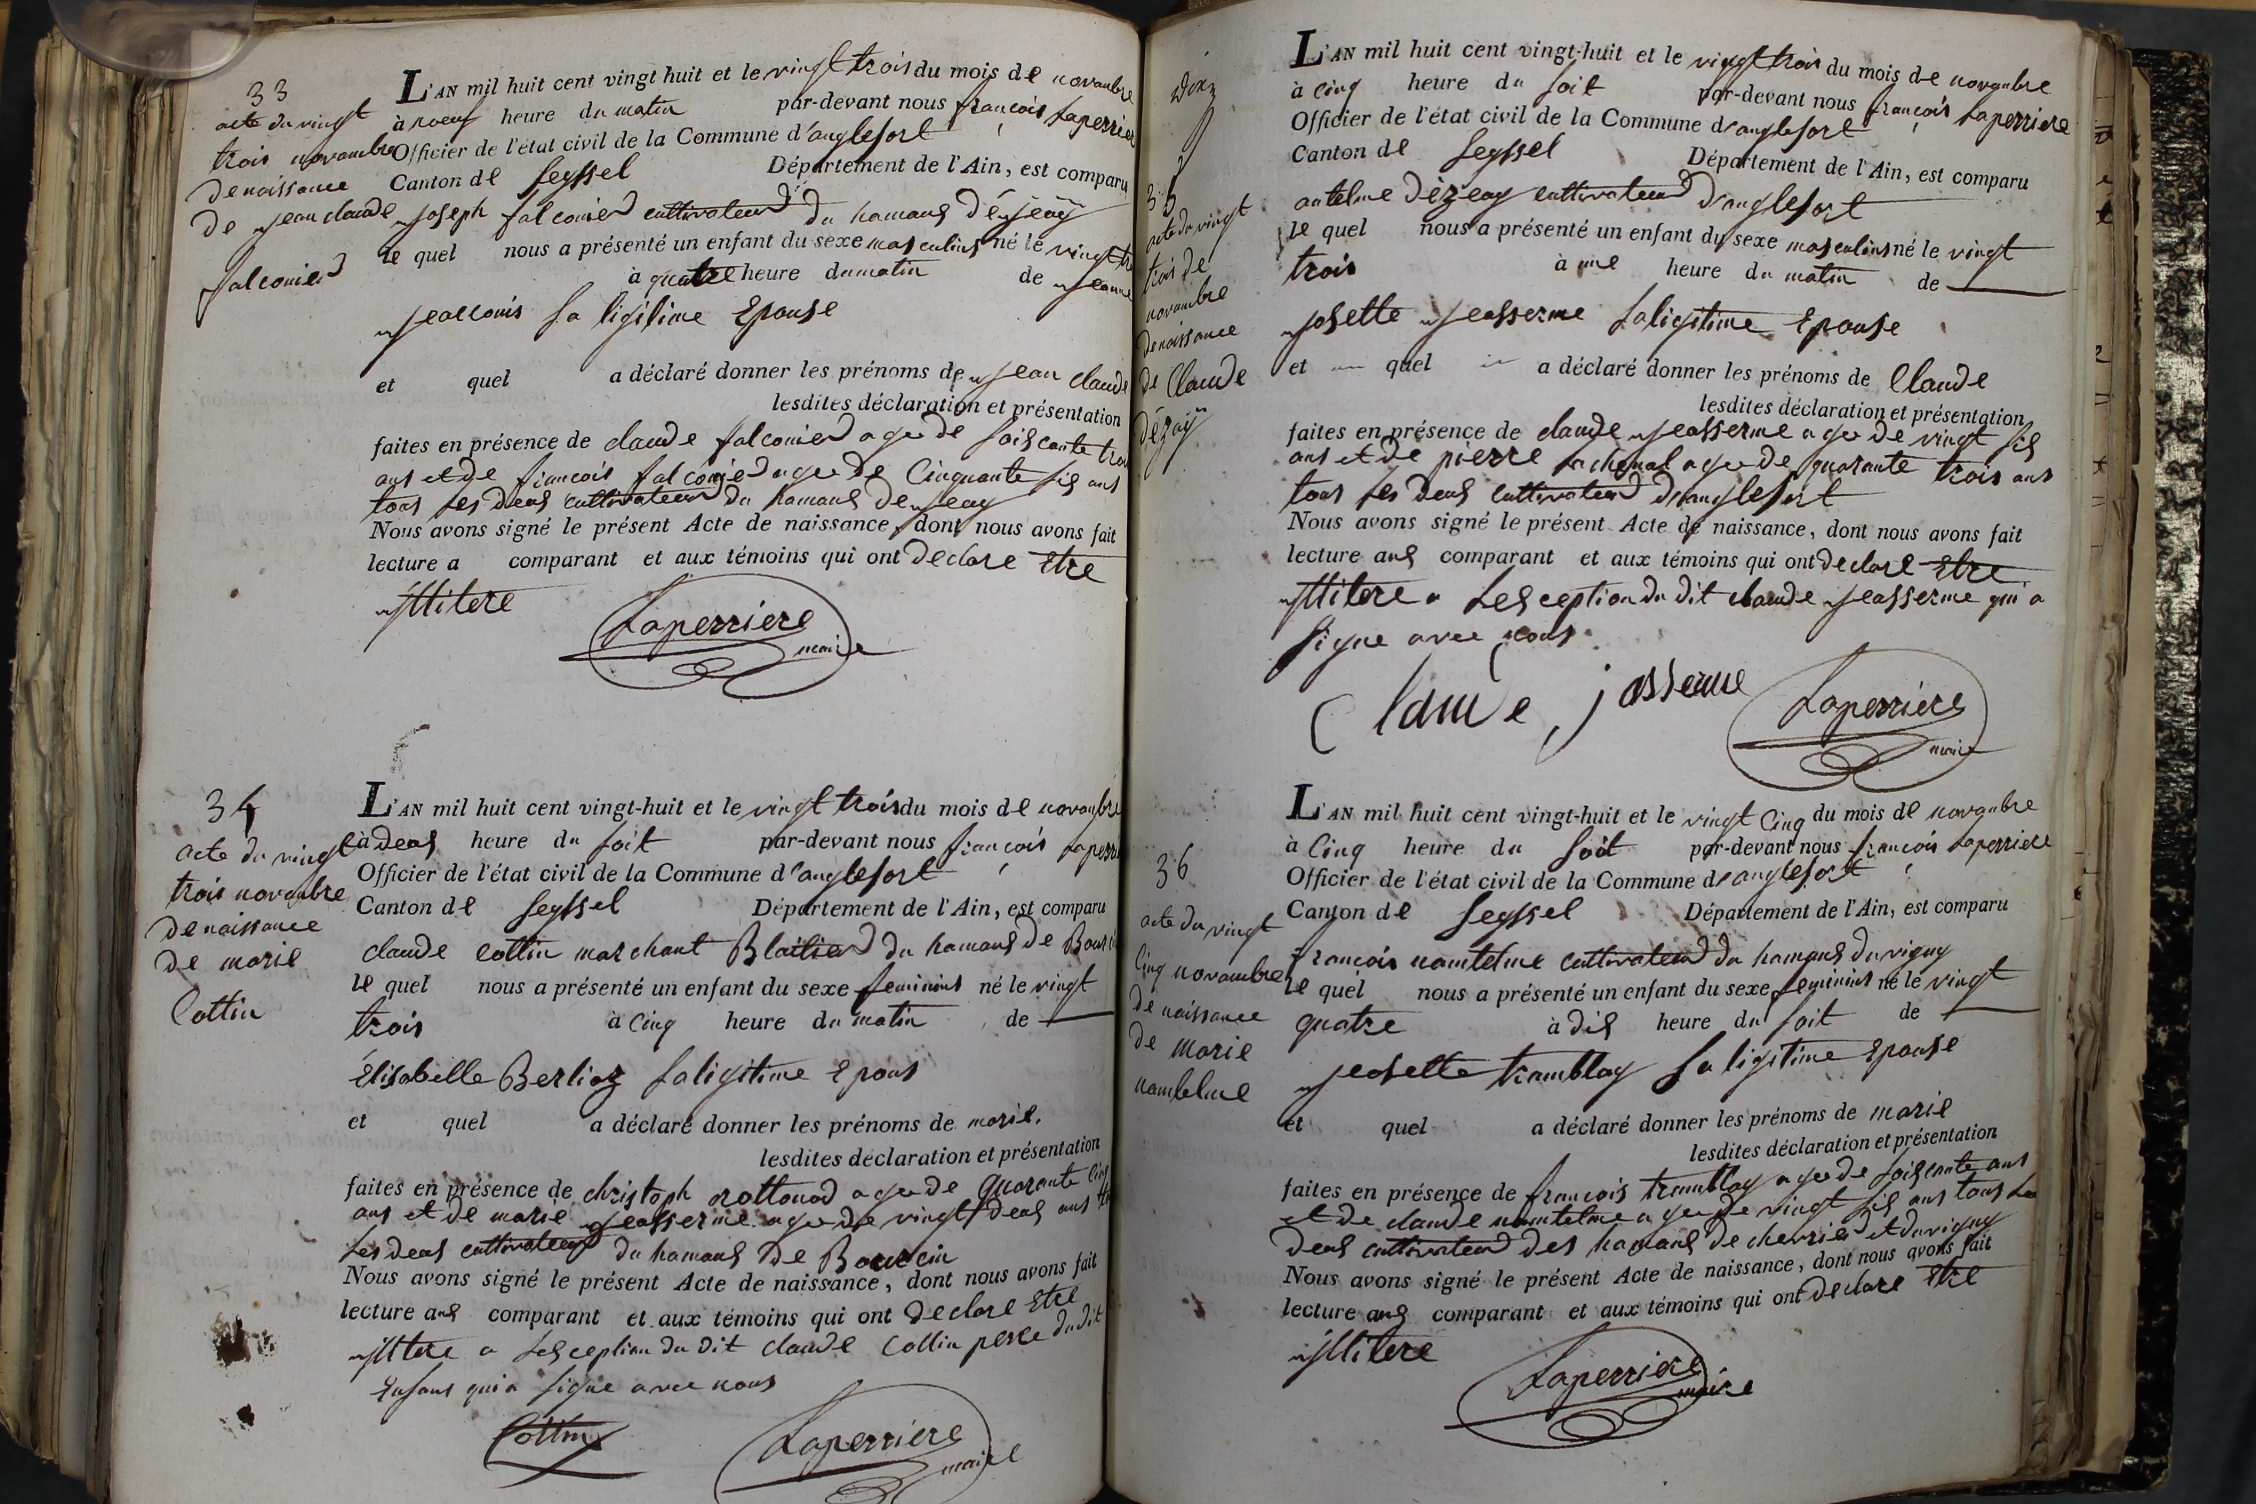 33
acte du vingt
trois novambre
de naissance
de jean claude
falconier
L'AN mil huit cent vingt huit et le vingt trois du mois de novambre
à noeuf heure du matin par-devant nous françois Laperriere
Officier de l'état civil de la Commune d'anglefort
Canton de Seyssel Département de l'Ain, est comparu
joseph falconier cultivateur du hamaus de
le quel nous a présenté un enfant du sexe masculins né le vingt
à quatre heure du matin de jeanne
sa ligitime Epouse
et quel a déclaré donner les prénoms de jean claude
lesdites déclaration et présentation
faites en présence de claude falconier agee de soiscante trois
ans et de francois falconier agee de Cinquante sis ans
tous les deus cultivateur du hamaus de
Nous avons signé le présent Acte de naissance, dont nous avons fait
lecture a comparant et aux témoins qui ont declare Etre
illitere
Laperriere
maire
34
acte du vingt
trois novambre
de naissance
de marie
Cottin
L'AN mil huit cent vingt-huit et le vingt trois du mois de novambre
à deus heure du soit par-devant nous françois Laperriere
Officier de l'état civil de la Commune d'anglefort
Canton de Seyssel Département de l'Ain, est comparu
claude cottin marchant Blaitier du hamaus de
le quel nous a présenté un enfant du sexe feminins né le vingt
trois à Cinq heure du matin de
Elisabelle Berlioz sa ligitime Epous
et quel a déclaré donner les prénoms de marie.
lesdites déclaration et présentation
faites en présence de christoph agee de quarante Cinq
ans et de marie jeasserme agee de vingt deus ans
les deus cultivateur du hamaus de Bourcin
Nous avons signé le présent Acte de naissance, dont nous avons fait
lecture aus comparant et aux témoins qui ont declare Etre
illitere a Lesception du dit claude Cottin perre dudit
Enfans qui a signe avec nous
Cottin
Laperriere
maire
35
acte du vingt
trois de
novambre
de naissance
de Claude
dézay
L'AN mil huit cent vingt-huit et le vingt trois du mois de novambre
à Cinq heure du soit par-devant nous françois Laperriere
Officier de l'état civil de la Commune d'anglefort
Canton de Seyssel Département de l'Ain, est comparu
antelme dézeay cultivateur d'anglefort
le quel nous a présenté un enfant du sexe masculins né le vingt
trois à une heure du matin de
josette jeasserme sa ligitime Epouse
et quel a déclaré donner les prénoms de Claude
lesdites déclaration et présentation
faites en présence de claude jeasserme agee de vingt sis
ans et de pierre Lachenal agee de quarante trois ans
tous les deus cultivateur d'anglefort
Nous avons signé le présent Acte de naissance, dont nous avons fait
lecture aus comparant et aux témoins qui ont declare Etre
illitere a Lesception du dit claude jeasserme qui a
signe avec nous
Claude jasserme
Laperriere
maire
36
acte du vingt
Cinq novambre
de naissance
de marie
namtelme
L'AN mil huit cent vingt-huit et le vingt Cinq du mois de novambre
à Cinq heure du soit par-devant nous françois Laperriere
Officier de l'état civil de la Commune d'anglefort
Canton de Seyssel Département de l'Ain, est comparu
françois namtelme cultivateur du hamaus du vigny
le quel nous a présenté un enfant du sexe feminins né le vingt
quatre à dis heure du soit de
jeosette tramblay sa ligitime Epouse
et quel a déclaré donner les prénoms de marie
lesdites déclaration et présentation
faites en présence de françois tramblay agee de soiscante ans
et de claude namtelme agee de vingt sis ans tous Les
deus cultivateur des hamaus de chevrier et du vigny
Nous avons signé le présent Acte de naissance, dont nous avons fait
lecture aus comparant et aux témoins qui ont declare Etre
illitere
Laperriere
maire